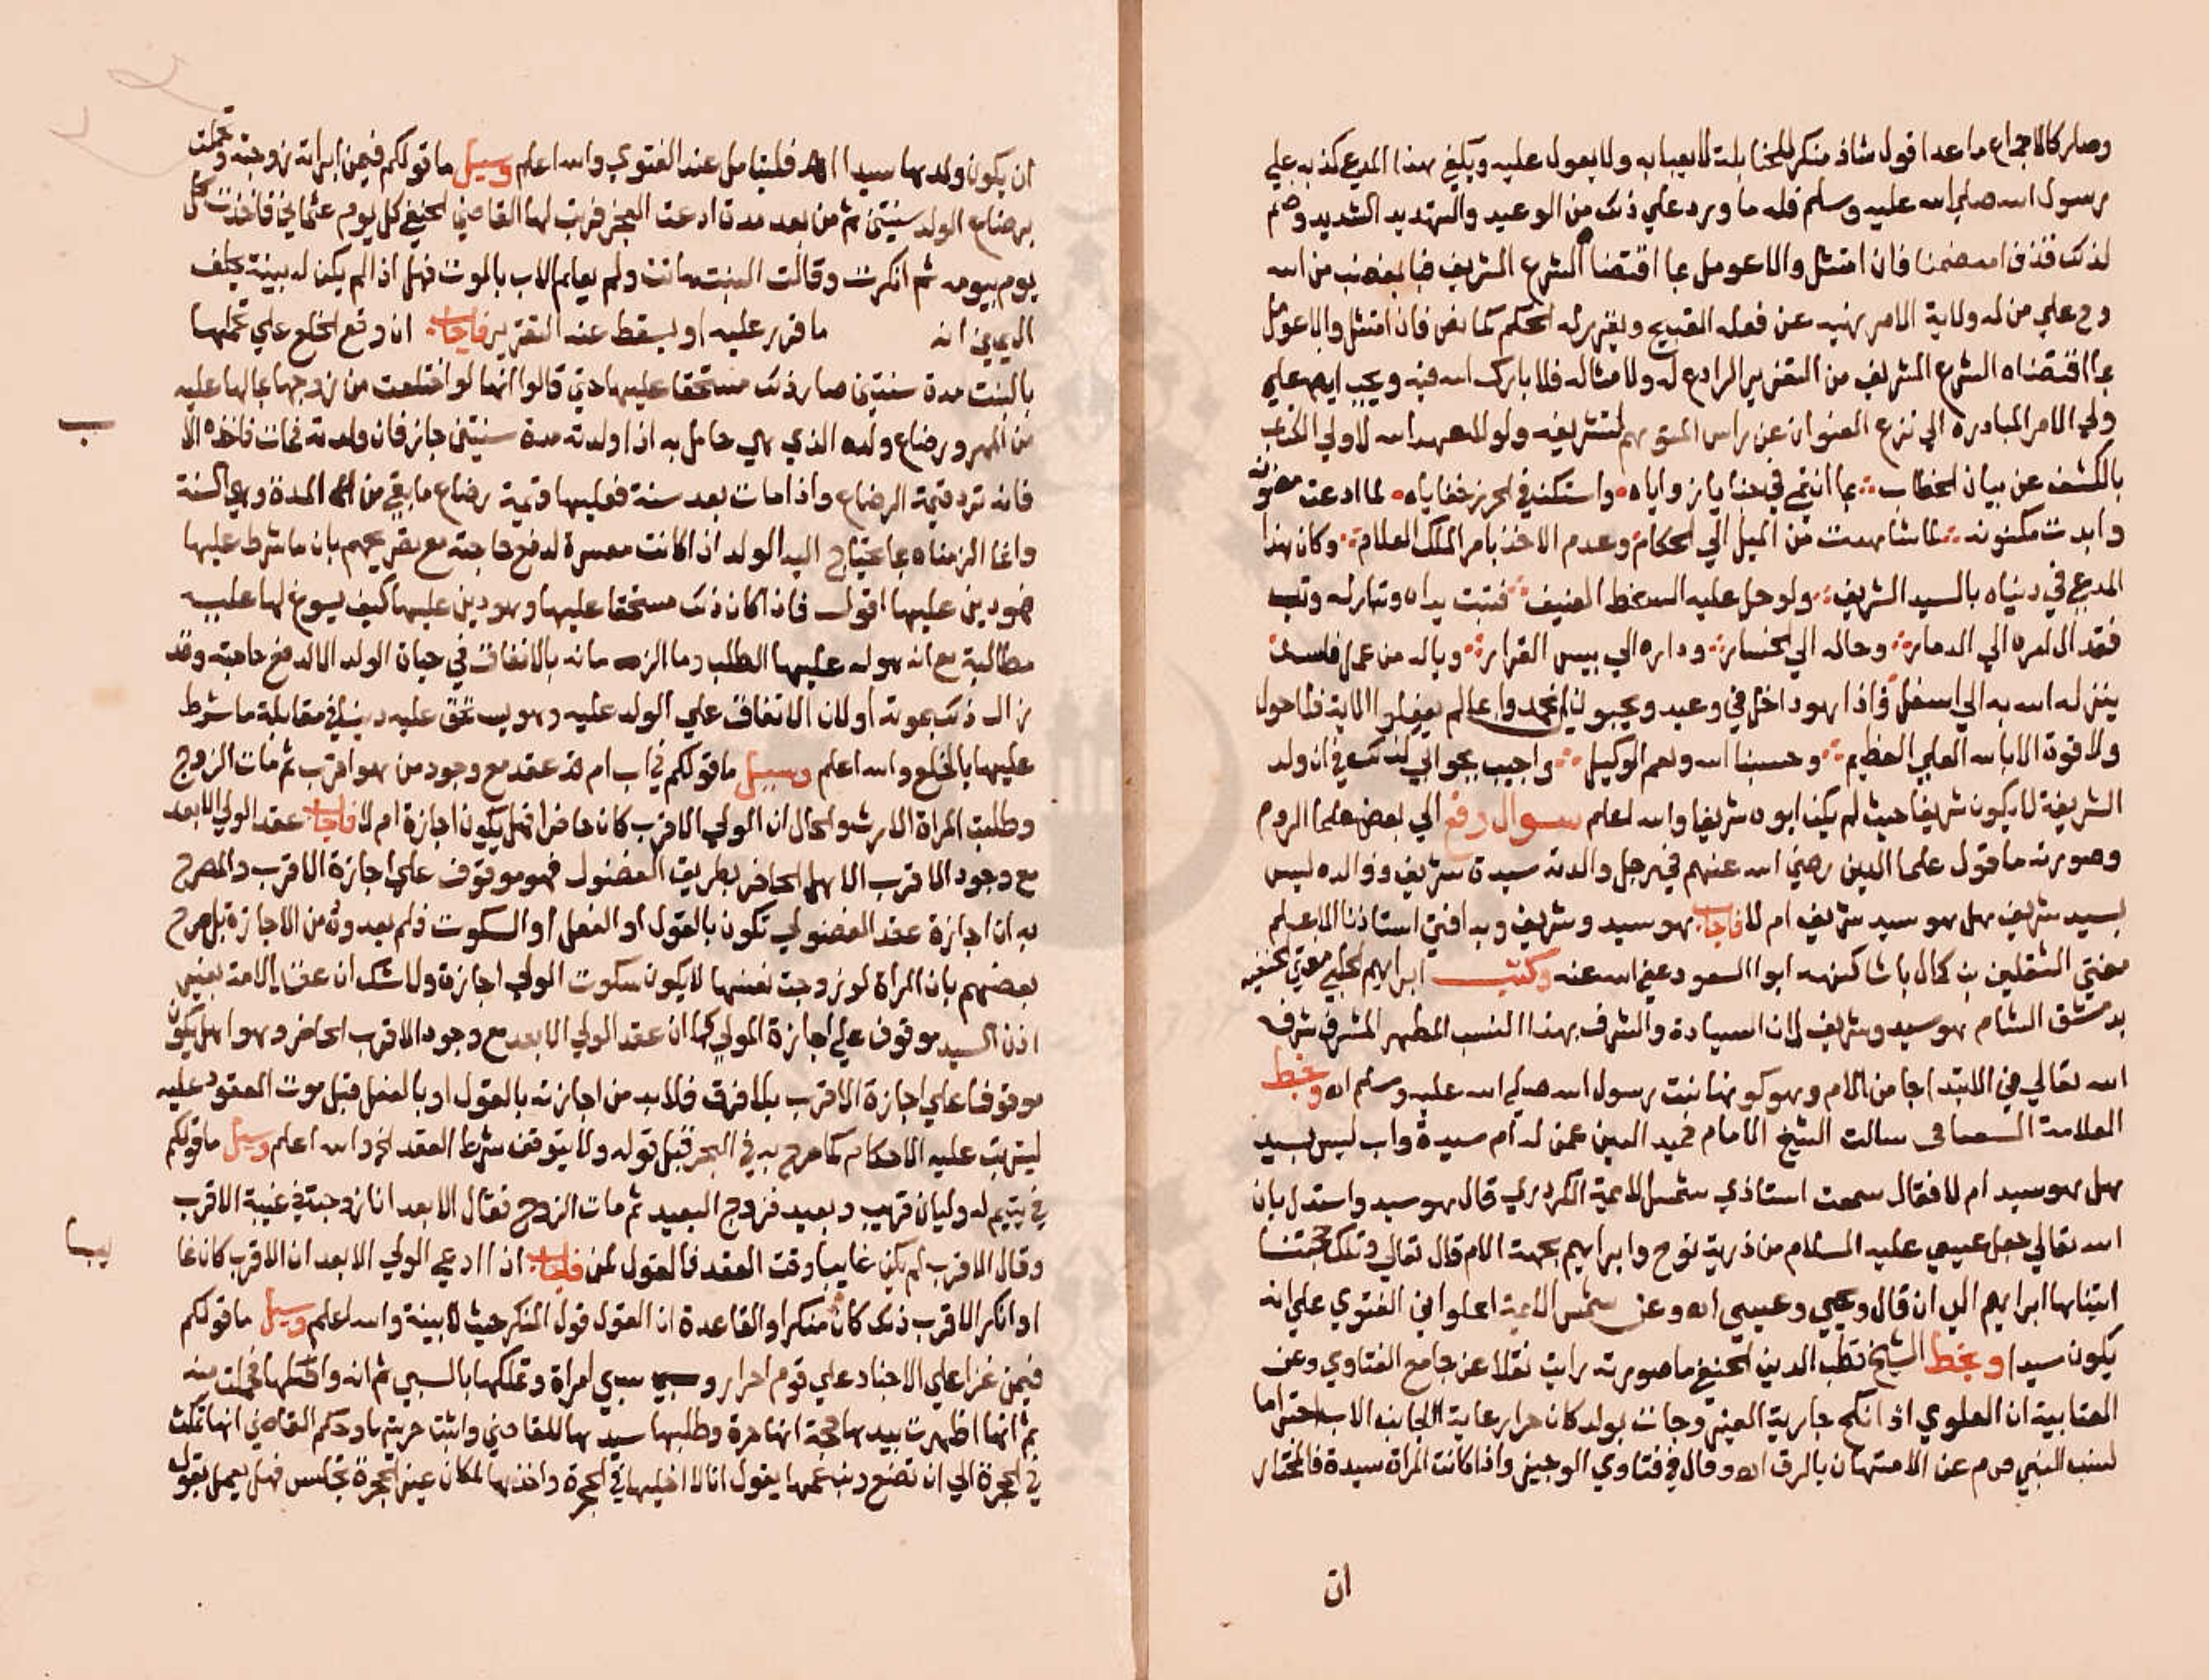 وصار كالاجماع ما عدا قول شاذ منكر للحنابلة لا يعبا به ولا يعول عليه ويكفي هذا المدعي كذبه علي
رسول الله صلي الله عليه وسلم فله ما ورد علي ذلك من الوعيد والتهديد الشديد وضم
لذلك قذف امه ضمنا فان امتثل والا عومل بما اقتضا الشرع الشريف فبا بغضب من الله
وح علي من له ولاية الامر نهيه عن فعله القبيح وتعزيره الحكم كما نص فان امتثل والا عومل
بما اقتضاه الشرع الشريف من التعزير الرادع له ولامثاله فلا بارك الله فيه ويجب ايضا علي
ولي الامر المبادره الي نزع العنوان عن راس المتوهم لتشريفه ولولا العهد الله لاولي
بالكشف عن بيان الخطاب بما انتم في حنايا زواياه واستكن في احرز خفاياه لما ادعت مصونه
وابدت مكنونه لما شاهدت من الميل الي الحكام وعدم الاخذ بامر الملك العلام وكان هذا
المدعي في دنياه بالسيد الشريف ولو حل عليه السخط العنيف فتبت يداه وتبا له وتب
فقد ال امره الي الدمار وحاله الي الخسار وداره الي بيس القرار وياله من عمل فاسد
ينزله الله به الي اسفل واذا هو داخل في وعيد ويحبون ان يحمدوا بما لم يفعلوا الاية فلا حول
ولا قوة الا بالله العلي العظيم وحسبنا الله ونعم الوكيل واجيب بجوابي كذلك في ان ولد
الشريفة لا يكون شريفا حيث لم يكن ابوه شريفا والله اعلم سوال رفع الي بعض علما الروم
وصورته ما قول علما الدين رضي الله عنهم في رجل والدته سيدة شريفه ووالده ليس
بسيد شريف هل هو سيد شريف ام لا فاجاب هو سيد وشريف وبه افتي استاذنا الاعلم
مفتي الثقلين بن كمال باشا كتبه ابو السعود عفي الله عنه وكتب ابراهيم الحلبي مفتي الحنفيه
بدمشق الشام هو سيد وشريف لان السيادة والشرف بهذا النسب المطهر المشرف شرفه
الله تعالي في الابتدا جا من الام وهو كونها بنت رسول الله صلي الله عليه وسلم اه وبخط
العلامة السعنافي سالت الشيخ الامام حميد الدين عمن له ام سيدة واب ليس بسيد
هل هو سيد ام لا فقال سمعت استاذي شمس الايمة الكردري قال هو سيد واستدل بان
الله تعالي جعل عيسي عليه السلام من ذرية نوح وابراهيم بجهة الام قال تعالي وتلك حجتنا
اتيناها ابراهيم الي ان قال ويحيي وعيسي اه وعن شمس الايمة الحلواني الفتوي علي انه
يكون سيدا وبخط الشيخ قطب الدين الحنفي ما صورته رايت نقلا عن جامع الفتاوي وعن
العتابية ان العلوي اذا نكح جارية الغير وجات بولد كان حرا رعاية لجانب الاب احتراما
لنسب النبي صلعم عن الامتهان بالرق اه وقال في فتاوي الوجيز واذا كانت المراة سيدة فالمختار
ان
ان يكون ولدها سيدا اه فليتامل عند الفتوي والله اعلم وسيل ما قولكم فيمن ابراته زوجته وتحملت
برضاع الولد سنتين ثم من بعد مدة ادعت العجز فرتب لها القاضي الحنفي كل يوم عثماني فاخذت كل
يوم بيومه ثم انكرت وقالت البنت ماتت ولم يعلم الاب بالموت فهل اذا لم يكن له بينة يحلف
اليمين انه ما قرر عليه او يسقط عنه التقرير فاجاب ان وقع الخلع علي تحملها
بالبنت مدة سنتين صار ذلك مستحقا عليها حتي قالوا انها لو اختلعت من زوجها بمالها عليه
من المهر ورضاع ولده الذي هي حامل به اذا ولدته مدة سنتين جاز فان ولدته فمات
فانه ترد قيمة الرضاع واذا مات بعد سنة فعليها قيمة رضاع ما بقي من المدة وهي السنة
وانما الزمناه بما يحتاج اليه الولد ان كانت معسرة لدفع حاجته مع تصريحهم بان ما شرط عليها
هو دين عليها اقول فاذا كان ذلك مستحقا عليها وهو دين عليها كيف يسوغ لها عليه
مطالبة مع انه هو له عليها الطلب وما الزمانه بالانفاق في حياة الولد الا لدفع حاجته وقد
زال ذلك بموته اولان الانفاق علي الولد عليه وهو يستحق عليه دينا في مقابلة ما شرط
عليها بالخلع والله اعلم وسيل ما قولكم في اب ام قد عقد مع وجود من هو اقرب ثم مات الزوج
وطلبت المراة الارث والحال ان الولي الاقرب كان حاضرا فهل يكون اجازة ام لا فاجاب عقد الولي الابعد
مع وجود الاقرب الاهل الحاضر بطريق الفضول فهو موقوف علي اجازة الاقرب والمصرح
به ان اجازة عقد الفضولي تكون بالقول او الفعل او السكوت فلم يعدوه من الاجازة بل صرح
بعضهم بان المراة لو زوجت نفسها لا يكون سكوت الولي اجازة ولا شك ان عقد الامة بغير
اذن السيد موقوف علي اجازة المولي كما ان عقد الولي الابعد مع وجود الاقرب الحاضر وهو اهل يكون
موقوفا علي اجازة الاقرب بلا فرق فلا بد من اجازته بالقول او بالفعل قبل موت المعقود عليه
ليترتب عليه الاحكام كما صرح به في البحر قبل قوله ولا يتوقف شرط العقد الخ والله اعلم وسيل ما قولكم
في يتيم له وليان قريب وبعيد فزوج البعيد ثم مات الزوج فقال الابعد انا زوجته في غيبة الاقرب
وقال الاقرب لم يكن غايبا وقت العقد فالقول لمن فاجاب اذا ادعي الولي الابعد ان الاقرب كان غا
او انكر الاقرب ذلك كان منكرا والقاعدة ان القول قول المنكر حيث لا بينة والله اعلم وسيل ما قولكم
فيمن غزا علي الاجناد علي قوم احرار وسبي امراة وتملكها بالسبي ثم انه واقعها فحملت منه
ثم انها اظهرت بيدها حجة انها حرة وطلبها سيدها للقاضي واثبتت حريتها وحكم القاضي انها تمكث
في الحجرة الي ان تضع وبن عمها يقول انا لا اخليها في الحجرة واخذها لمكان غير الحجرة تجلس فهل يعمل بقول
ب
يب